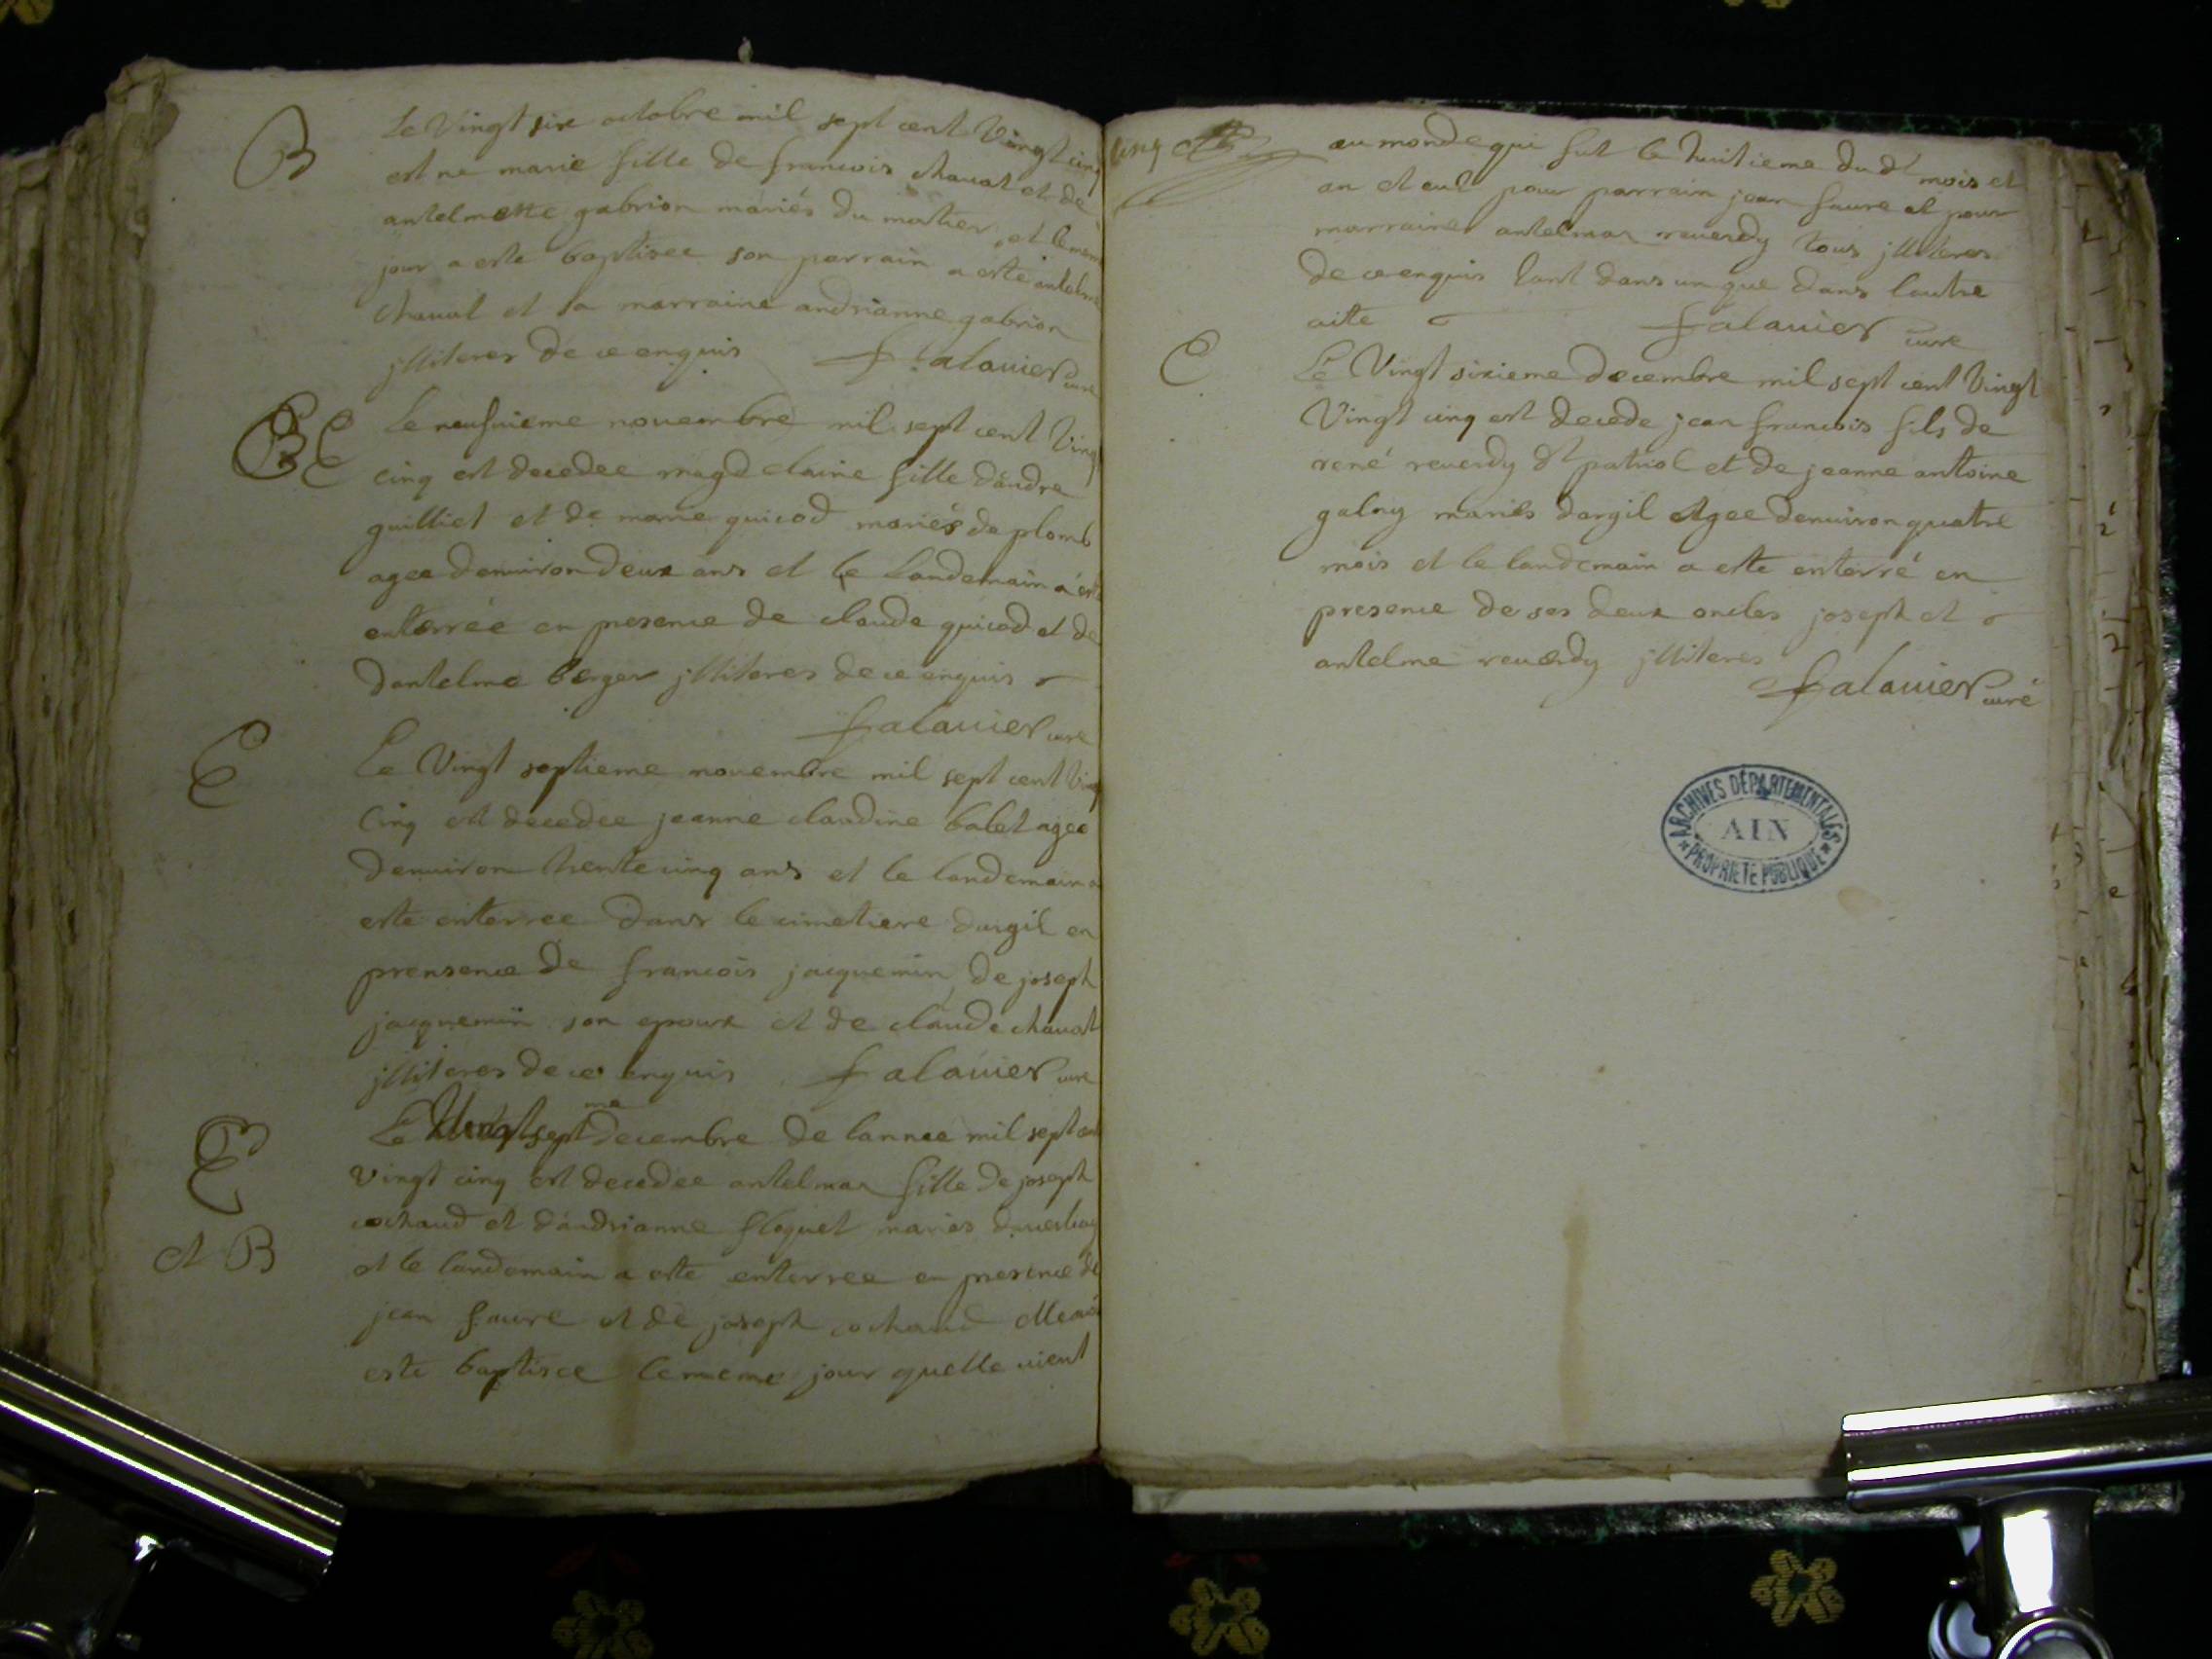 B
Le Vingt six octobre mil sept cent Vingt cinq
est ne marie fille de francois chavat et de
antelmette gabrion mariés du mortier et le mem
jour a este baptisee son parrain a esté antelme
chavat et sa marraine andrianne gabrion
jlliteres de ce enquis falavier cure
BE
Le neufvieme novembre mil sept cent Ving
cinq est decedee magdelaine fille dandre
guilliet et de marie quicod mariés de plomb
agee denviron deux ans et le landemain a esté
enterrée en presence de claude quicod et de
dantelme berger jlliteres de ce enquis
falavier cure
E
Le Vingt septieme novembre mil sept cent Ving
Cinq est decedee jeanne claudine balet agee
denviron trente cinq ans et le landemain a
este enterree dans le cimetiere dargil en
prensence de francois jacquemin de joseph
jacquemin son epoux et de claude chavat
jlliteres de ce enquis falavier cure
E
et B
Le sept me decembre de lannee mil sept cent
vingt cinq est decedee antelmar fille de joseph
cochaud et dandrianne floquet mariés
et le landemain a este enterree en presence de
jean faure et de joseph cochaud elle a
este baptisee le meme jour quelle vient
cinq
au monde qui fut le huitieme dudt mois et
an et eut pour parrain jean faure et pour
marraine antelmar reverdy tous jlliteres
de ce enquis tant dans un que dans lautre
aite falavier cure
E
Le Vingt sixieme decembre mil sept cent Vingt
Vingt cinq est decede jean francois fils de
rené reverdy dt patriol et de jeanne antoine
galny mariés dargil Agee denviron quatre
mois et le landemain a este enterré en
presence de ses deux oncles joseph et
antelme reverdy jlliteres
falavier curé
ARCHIVES DÉPARTEMENTALES
AIN
PROPRIÉTÉ PUBLIQUE